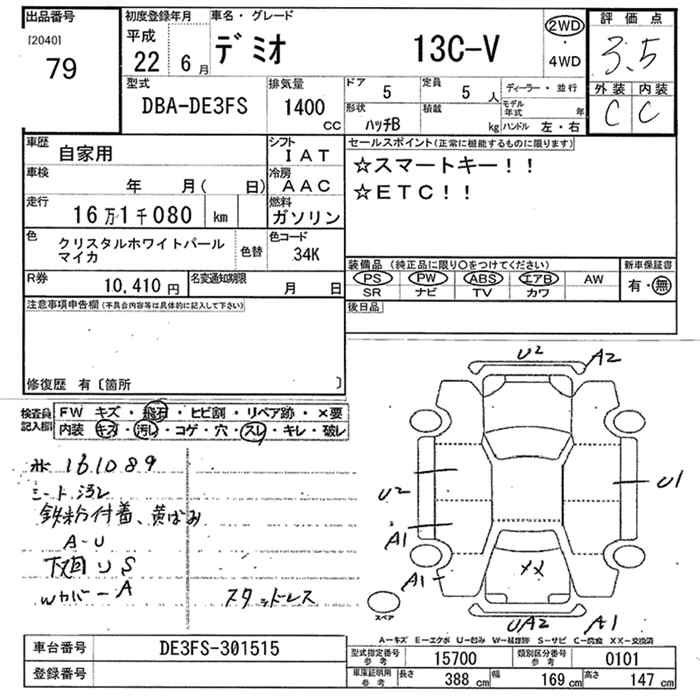 出品番号
[2040]
79
初度登録年月
平成
22 6月
車名・グレード
デミオ 13C-V
2WD
・
4WD
評価点
3.5
外装 内装
C C
型式
DBA-DE3FS
排気量
1400
CC
ドア
5
定員
5 人
形状
ハッチB
積載
kg
ディーラー・並行
モデル年式 年
ハンドル 左・右
車歴
自家用
シフト
IAT
車検
年 月( 日)
冷房
AAC
走行
16万1千080 km
燃料
ガソリン
色
クリスタルホワイトパール
マイカ
色替
色コード
34K
R券
10,410 円
名変通知期限
月 日
セールスポイント(正常に機能するものに限ります)
☆スマートキー!!
☆ETC!!
装備品(純正品に限り○をつけてください)
PS PW ABS エアB AW
SR ナビ TV カワ
新車保証書
有・無
後日品
注意事項申告欄(不具合内容等は具体的に記入して下さい)
修復歴 有〔箇所 〕
検査員
記入欄
FW キズ・飛石・ヒビ割・リペア跡・×要
内装 キズ・汚レ・コゲ・穴・スレ・キレ・破レ
161089
シート汚レ
鉄粉付着、黄ばみ
A-U
下廻りS
Wカバー A
スタッドレス
U2
A2
U2
U1
A1
A1
XX
UA2
A1
スペア
A-キズ E-エクボ U-凹み W-補修跡 S-サビ C-腐食 XX-交換済
車台番号
DE3FS-301515
登録番号
型式指定番号
参考
15700
類別区分番号
参考
0101
車庫証明用
参考
長さ 388 cm
幅 169 cm
高さ 147 cm